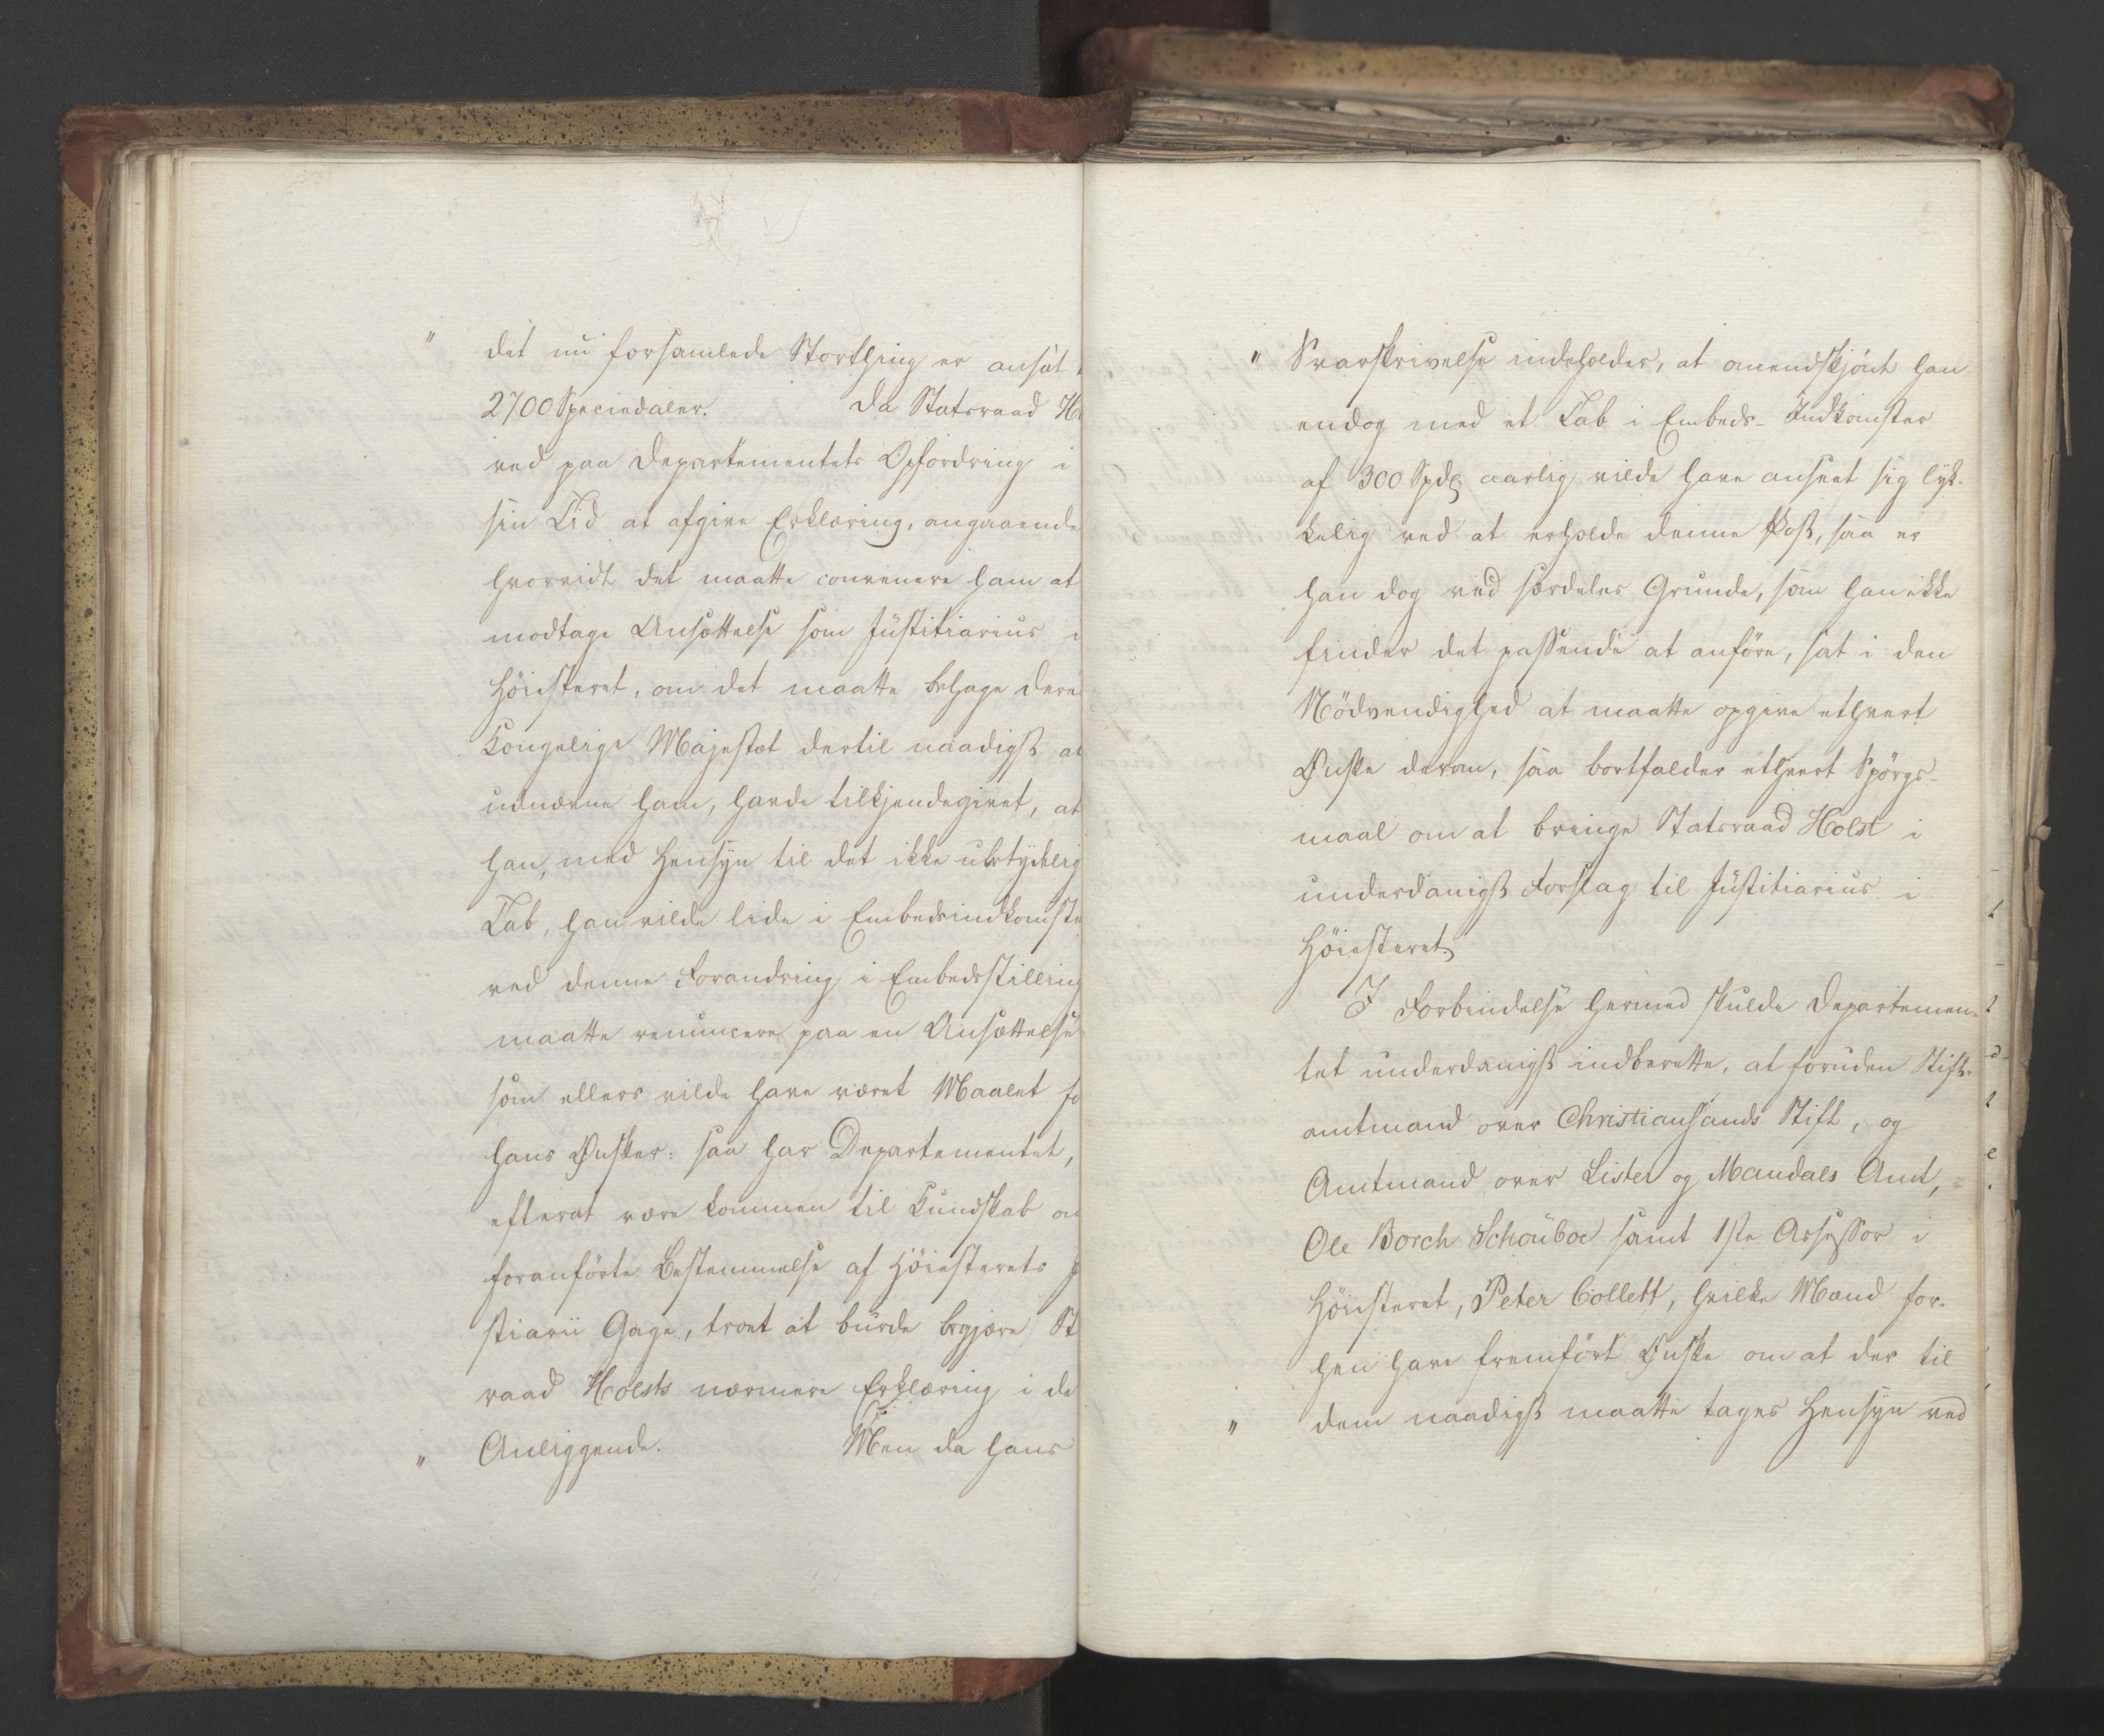 " det nu forsamlede Storthing er ansat
2700 Speciedaler. Da Statsraad
ved paa Departementets Opfordring i
sin Tid at afgive Erklæring, angaaende
hvorvidt det maatte convenere ham at
modtage Ansættelse som Justitiarius i
Høiesteret, om det maatte behage Deres
Kongelige Majestæt dertil naadigst at
udnævne ham, havde tilkjendegivet, at
han, med Hensyn til det ikke ubetydelig
Tab, han vilde lide i Embedsindkomste
ved denne Forandring i Embedsstilling
maatte renuncere paa en Ansættelse
som ellers vilde have været Maalet fo
hans Ønsker: saa har Departementet,
efterat være kommen til Kundskab om
foranførte Bestemmelse af Høiesterets J
stiarii Gage, troet at burde begjære St
raad Holsts nærmere Erklæring i de
" Anliggende. Men da hans
" Svarskrivelse indeholder, at omendskjönt han
endog med et Tab i Embeds- Indkomster
af 300 Spdlr aarlig vilde have anseet sig lyk-
kelig ved at erholde denne Post, saa er
han dog ved særdeles Grunde, som han ikke
finder det passende at anföre, sat i den
Nödvendighed at maatte opgive ethvert
Ønske derom, saa bortfalder ethvert Spörgs-
maal om at bringe Statsraad Holst i
underdanigst Forslag til Justitiarius i
Höiesteret.
I Forbindelse hermed skulde Departemen-
tet underdanigst indberette, at foruden Stift-
amtmand over Christiansands Stift, og
Amtmand over Lister og Mandals Amt,
Ole Borch Schouboe samt 1ste Assessor i
Höiesteret, Peter Collett, hvilke Mænd for-
hen have fremfört Ønske om at der til
" dem naadigst maatte tages Hensyn ved